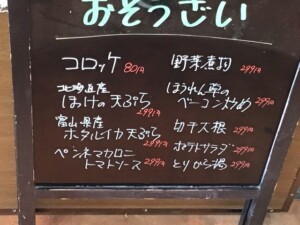 おそうざい
コロッケ 80円
北海道産
ほっけの天ぷら
299円
富山県産
ホタルイカ天ぷら
299円
ペンネマカロニ
トマトソース 299円
野菜煮物 299円
ほうれん草の
ベーコン炒め 299円
切干大根 299円
ポテトサラダ 299円
とりから揚 299円